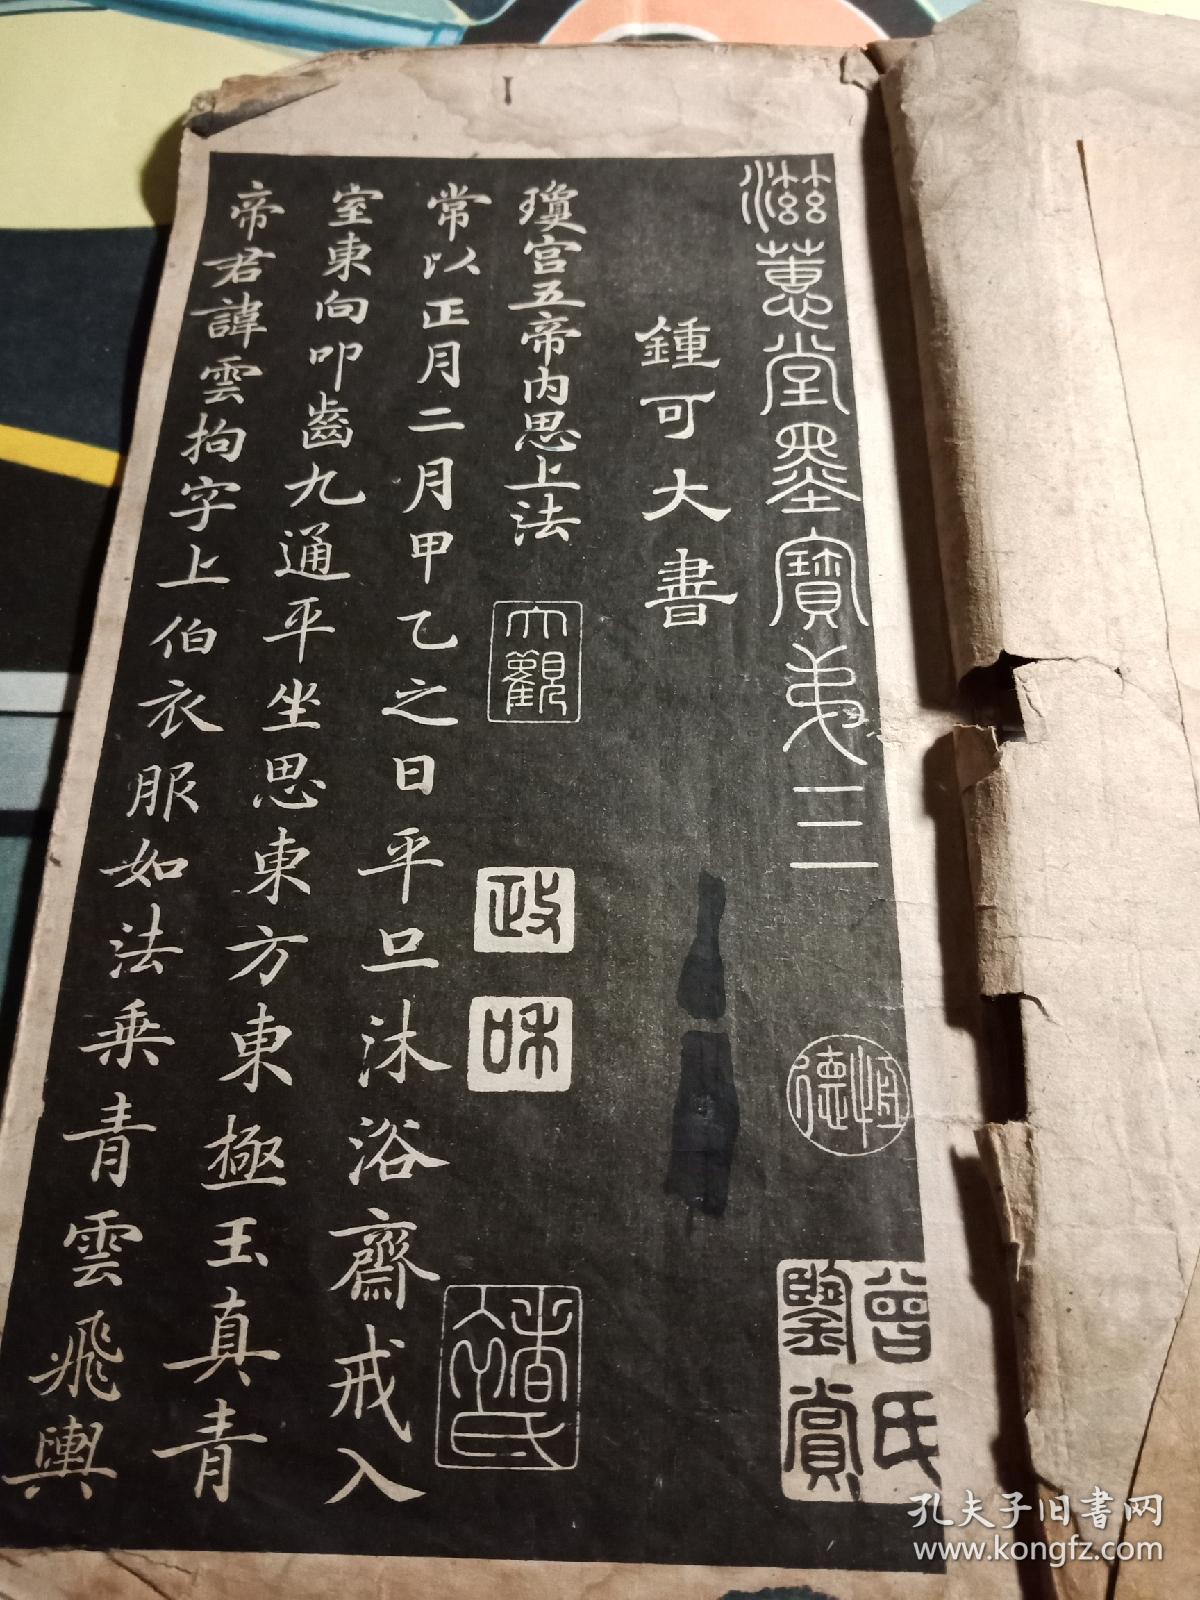 滋蕙堂墨寶弟三
恒德
曾氏鑒賞
鍾可大書
瓊宮五帝內思上法
大觀
政和
常以正月二月甲乙之日平旦沐浴齋戒入
室東向叩齒九通平坐思東方東極玉真青
帝君諱雲拘字上伯衣服如法乘青雲飛輿
孔夫子旧书网
www.kongfz.com